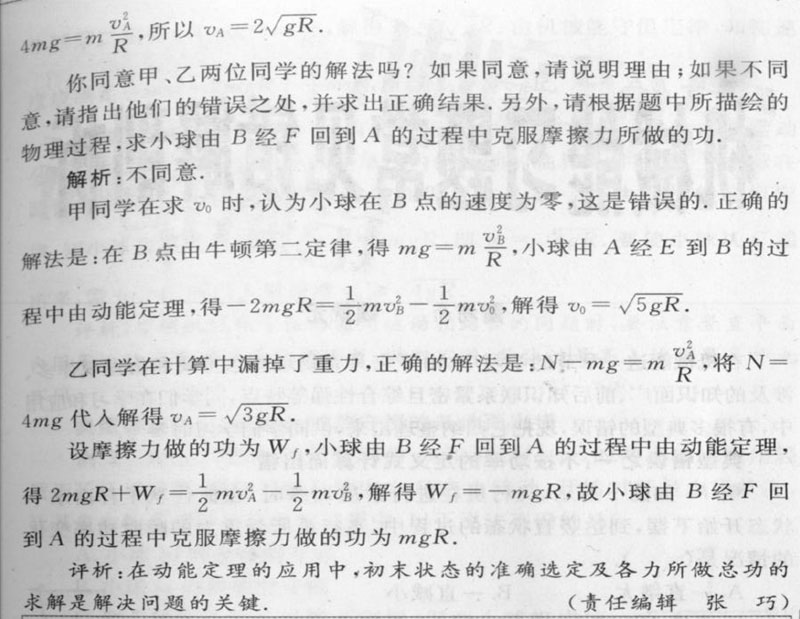 4mg=m v_A²/R,所以 v_A=2√gR.
你同意甲、乙两位同学的解法吗?如果同意,请说明理由;如果不同
意,请指出他们的错误之处,并求出正确结果.另外,请根据题中所描绘的
物理过程,求小球由 B 经 F 回到 A 的过程中克服摩擦力所做的功.
解析:不同意.
甲同学在求 v₀ 时,认为小球在 B 点的速度为零,这是错误的.正确的
解法是:在 B 点由牛顿第二定律,得 mg=m v_B²/R,小球由 A 经 E 到 B 的过
程中由动能定理,得-2mgR=1/2mv_B²-1/2mv₀²,解得 v₀=√5gR.
乙同学在计算中漏掉了重力,正确的解法是:N-mg=m v_A²/R,将 N=
4mg 代入解得 v_A=√3gR.
设摩擦力做的功为 W_f,小球由 B 经 F 回到 A 的过程中由动能定理,
得 2mgR+W_f=1/2mv_A²-1/2mv_B²,解得 W_f=-mgR,故小球由 B 经 F 回
到 A 的过程中克服摩擦力做的功为 mgR.
评析:在动能定理的应用中,初末状态的准确选定及各力所做总功的
求解是解决问题的关键.(责任编辑 张 巧)